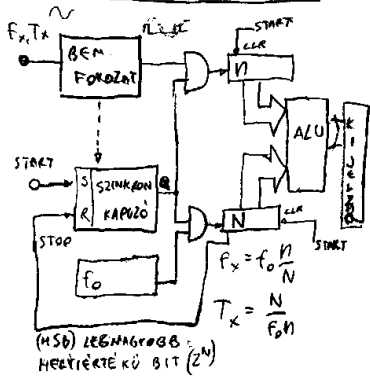 fx, Tx
BEM.
FOKOZAT
START
CLR
n
ALU
KIJELZŐ
START
S
R
SZINKRON
KAPUZÓ
Q
STOP
N
CLR
START
f₀
fx = f₀ n/N
Tx = N/f₀n
(MSB) LEGNAGYOBB
HELYIÉRTÉKŰ BIT (2^N)